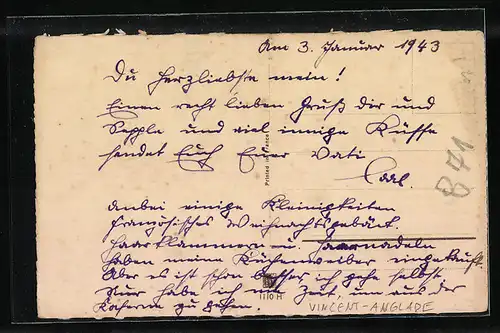 Am 3. Januar 1943
Du herzliebste mein!
Einen recht lieben Gruß dir und
Sepple und viel innige Küsse
sendet Euch Euer Vati
Carl.
Anbei einige Kleinigkeiten
französisches Weihnachtsgebäck.
Haarklammern u. Haarnadeln
haben meine Küchenweiber eingekauft.
Aber es ist schon besser ich gehe selbst
Nur habe ich nie Zeit, um aus der
Kaserne zu gehen.
Printed in France
841
1110 H
VINCENT-ANGLADE